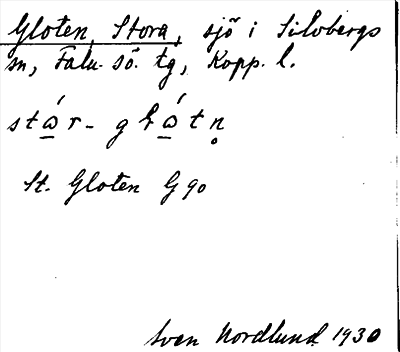 Gloten, Stora, sjö i Silvbergs
sn, Falu sö. tg, Kopp. l.
stá̲r- glá̲tn̥
St. Gloten G 90
Sven Nordlund 1930